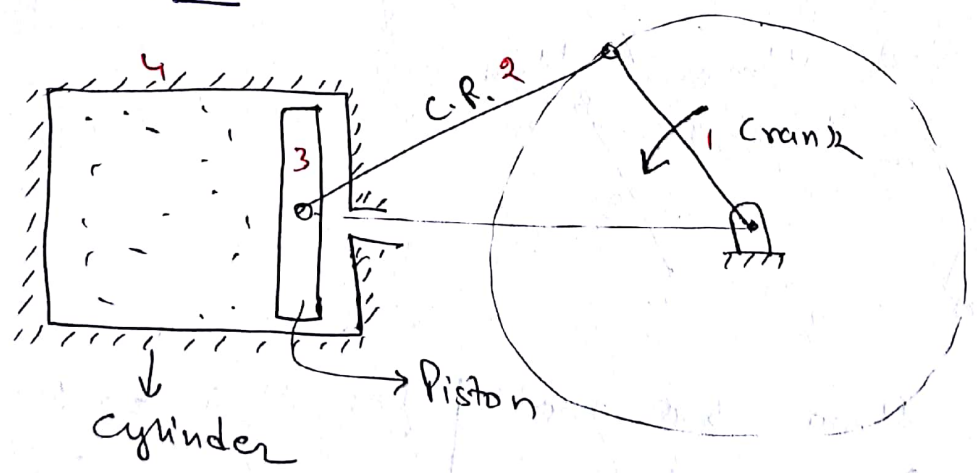 4
C.R. 2
3
1 Crank
Piston
Cylinder